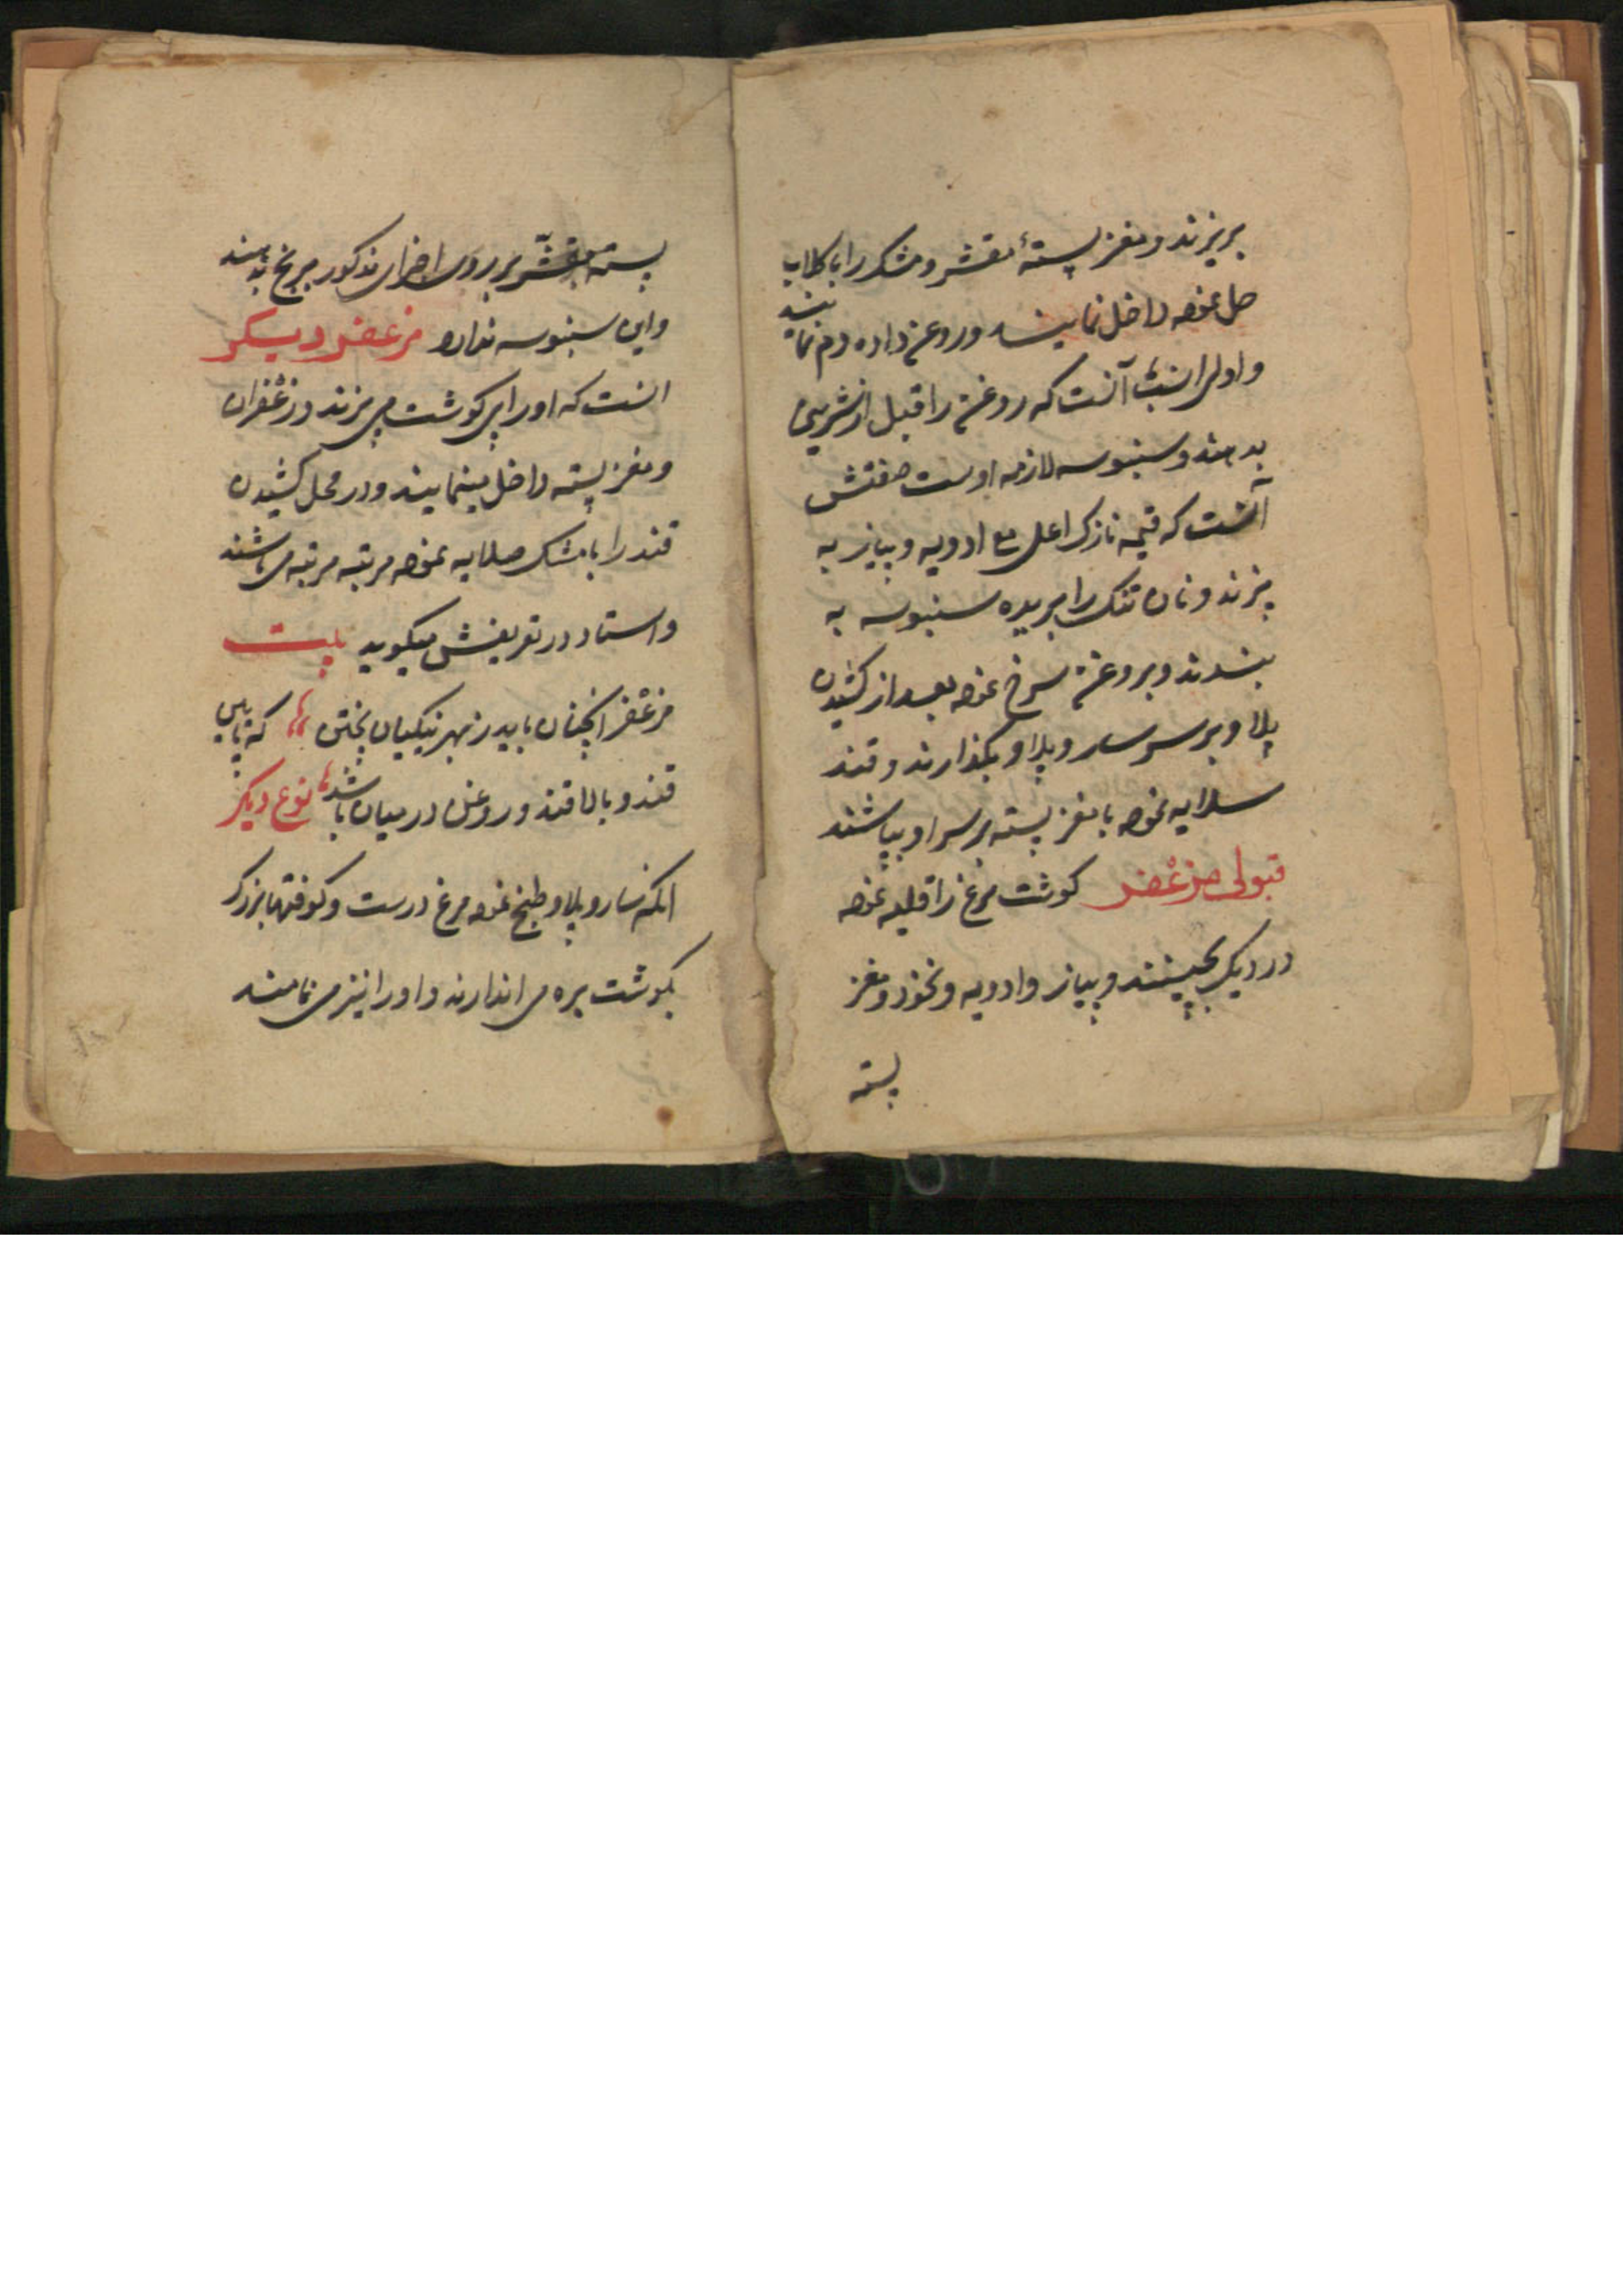 بریزند و مغز پستهٔ مقشر و مشک را با گلاب
حل نموده داخل نمایند و روغن داده دم نمایند
و اولی انسب آنست که روغن را قبل از شیرینی
بدهند و سنبوسه لازمه اوست صفتش
آنست که قیمه نازک اعلی مع ادویه و پیاز به
پزند و نان تنک را بریده سنبوسه به
بندند و بروغن سرخ نموده بعد از کشیدن
پلاو بر سر ساروپلاو بگذارند و قند
سلایه نموده با مغز پسته بر سر او بپاشند
قبولی مزعفر کوشت مرغ را قلیه نموده
در دیک بچینند و پیاز و ادویه و نخود و مغز
پسته
پسته مقشّر بر روی اجزای مذکور برنج بدهند
و این سنبوسه ندارد مزعفر دیکر
انست که او را بی کوشت می پزند و زعفران
و مغز پسته داخل مینمایند و در محل کشیدن
قند را با مشک صلایه نموده مرتبه مرتبه می باشند
و استاد در تعریفش میکوید بیت
مزعفر انچنان باید ز بهر نیکیان پختن که پایین
قند و بالا قند و روغن در میان باشد نوع دیکر
انکه ساروپلاو طبخ نموده مرغ درست و کوفتها بزرک
بکوشت بره می اندازند و او را نیز می نامند